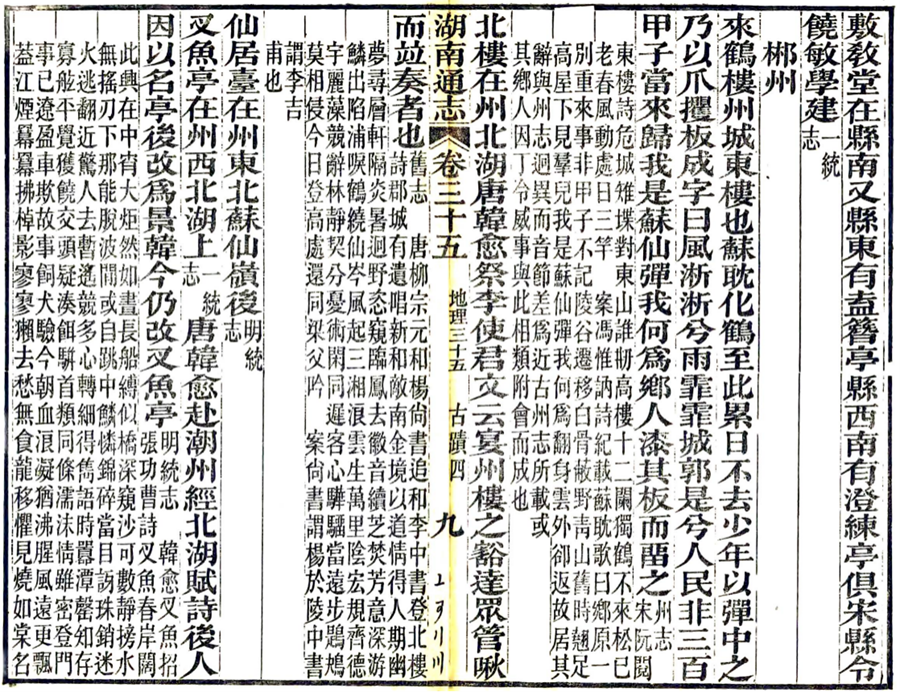 敷敎堂在縣南又縣東有盍簪亭縣西南有澄練亭俱宋縣令
饒敏學建一統志
郴州
來鶴樓州城東樓也蘇耽化鶴至此累日不去少年以彈中之
乃以爪攫板成字曰風淅淅兮雨霏霏城郭是兮人民非三百
甲子當來歸我是蘇仙彈我何爲鄉人漆其板而畱之州志 宋阮閱
東樓詩危城雉堞對東山誰刱高樓十二闌獨鶴不來松已
老春風動處日三竿 案馮惟訥詩紀載蘇耽歌曰鄉原一
別重來事非甲子不記陵谷遷移白骨蔽野靑山舊時翹足
高屋下見羣兒我是蘇仙彈我何爲翻身雲外卻返故居其
辭與州志迥異而音節差爲近古州志所載或
其鄉人因丁令威事與此相類附會而成也
北樓在州北湖唐韓愈祭李使君文云宴州樓之豁達眾管啾
湖南通志 卷三十五 地理三十五 古蹟四 九
而竝奏者也舊志 唐柳宗元和楊尙書追和李中書登北樓
詩郡城有遺唱新和敵南金境以道情得人期幽
夢尋層軒隔炎暑迥野恣窺臨鳳去徽音續芝焚芳意深游
鱗出陷浦唳鶴繞仙岑風起三湘浪雲生萬里陰宏規齊德
宇麗藻競辭林靜契分憂術閑同遲客心驊騮當遠步鶗鴂
莫相侵今日登高處還同梁父吟 案尙書謂楊於陵中書
謂李吉
甫也
仙居臺在州東北蘇仙嶺後明統志
叉魚亭在州西北湖上一統志唐韓愈赴潮州經北湖賦詩後人
因以名亭後改爲景韓今仍改叉魚亭明統志 韓愈叉魚招
張功曹詩叉魚春岸闊
此興在中宵大炬然如晝長船縛似橋深窺沙可數靜搒水
無搖刃下那能脫波間或自跳中鱗憐錦碎當目訝珠銷迷
火逃翻近驚人去暫遙競多心轉細得雋語時囂潭罄知存
寡舷平覺獲饒交頭疑湊餌駢首類同條濡沫情雖密登門
事已遼盈車欺故事飼犬驗今朝血浪凝猶沸腥風遠更飄
蓋江煙羃羃拂棹影寥寥獺去愁無食龍移懼見燒如棠名